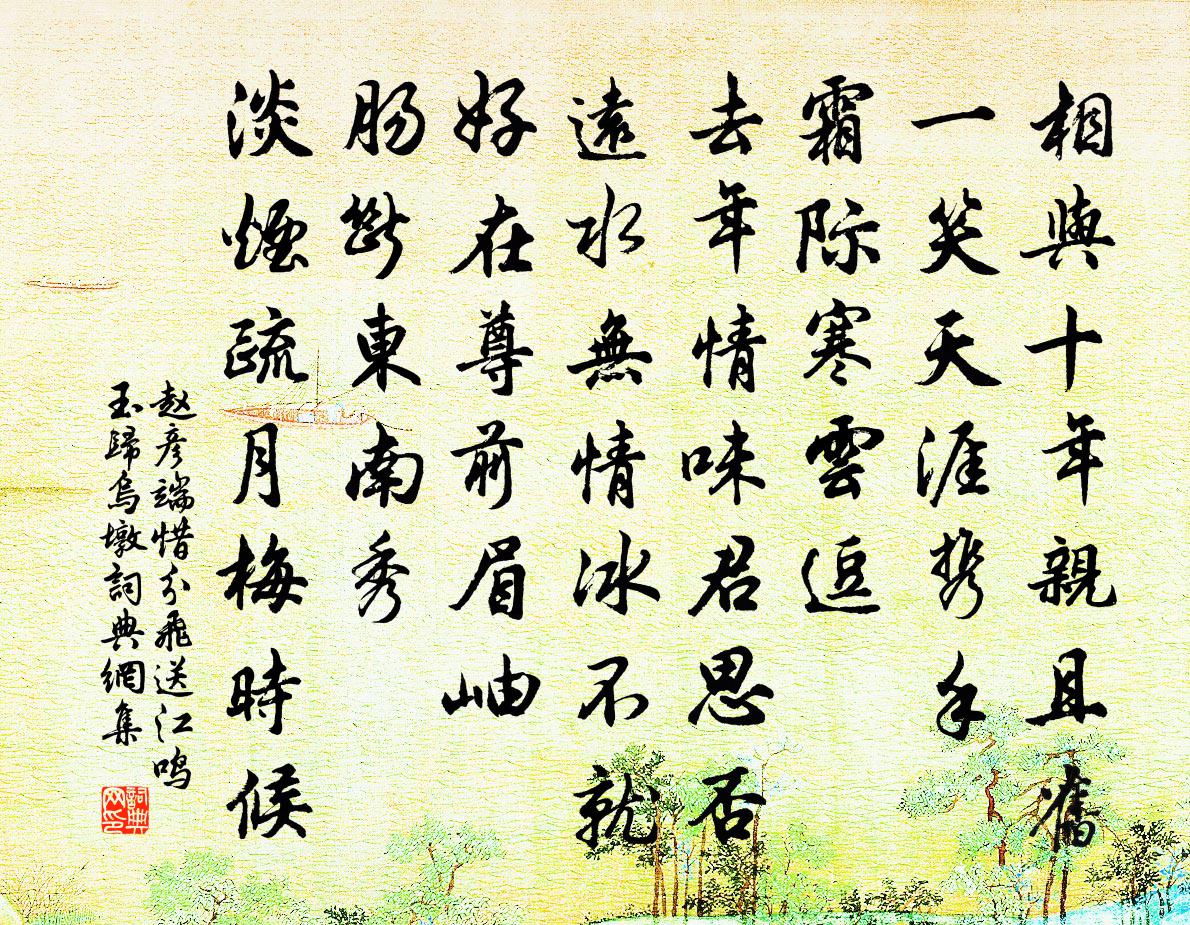 相與十年親且舊
一笑天涯携手
霜际寒雲逗
去年情味君思否
遠水無情冰不就
好在尊前眉岫
肠斷東南秀
淡煙疏月梅時候
赵彦端惜分飛送江鸣
玉歸烏墩詞典網集
詞典
网印